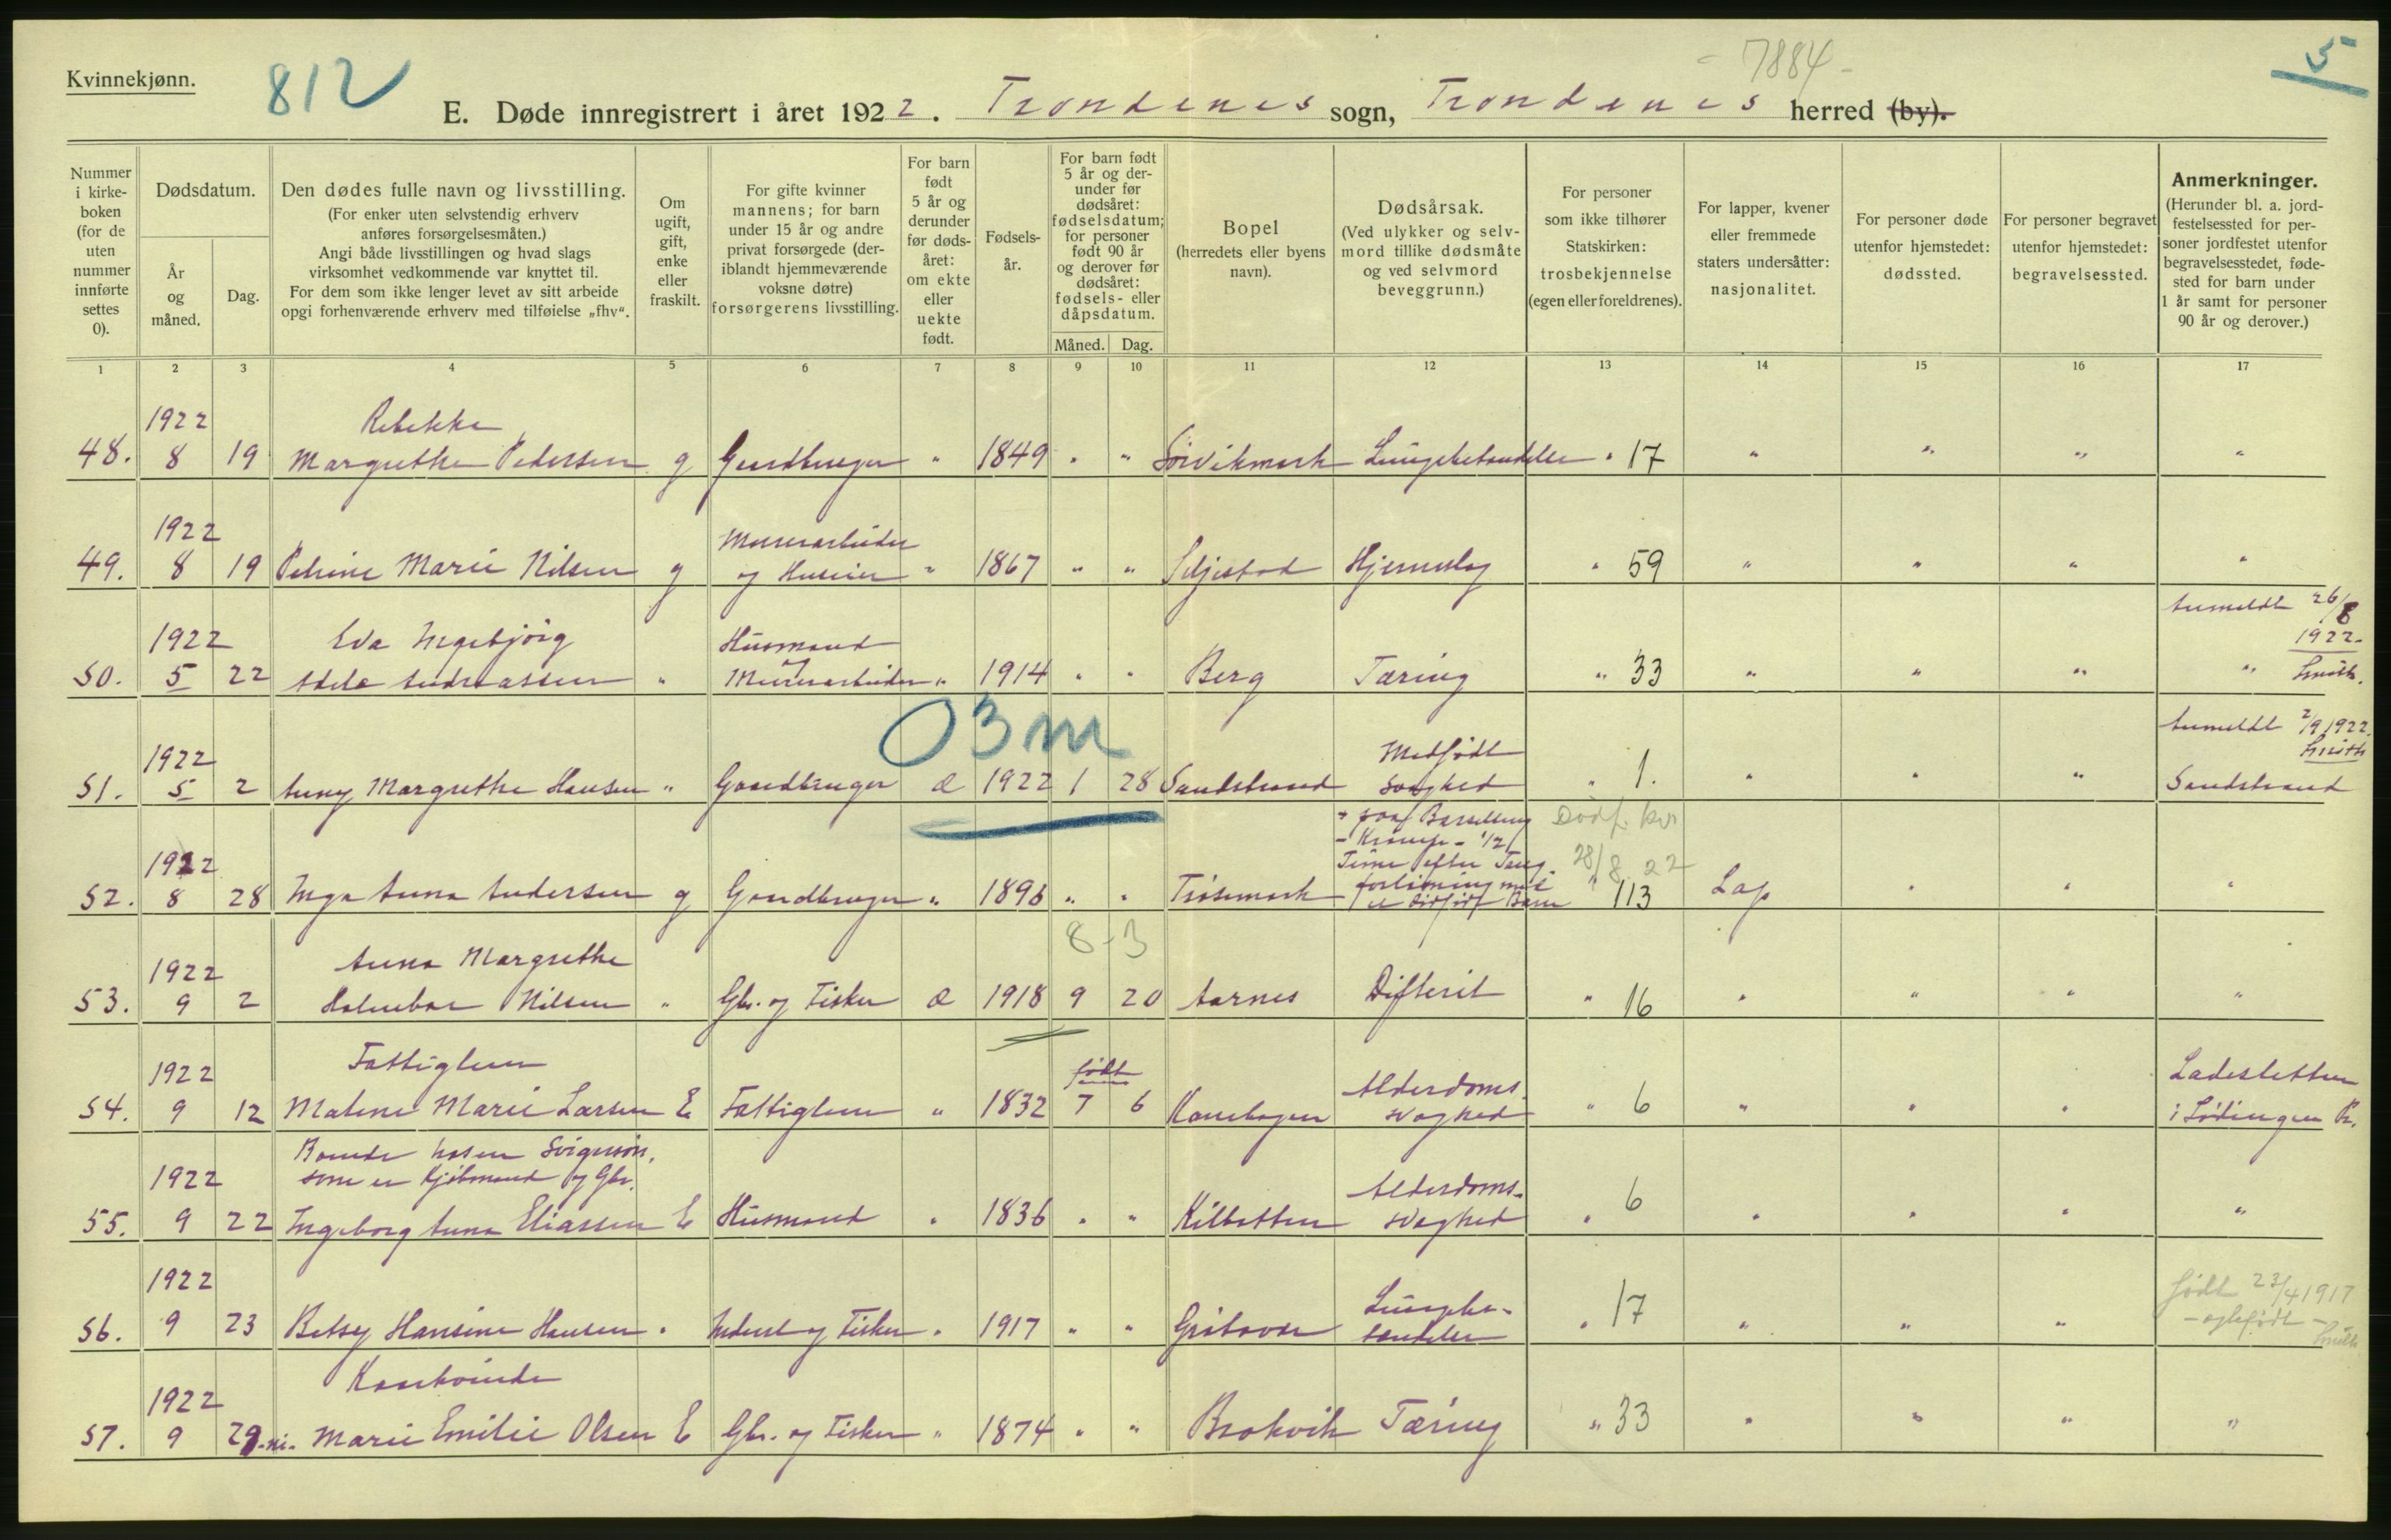 Kvinnekjønn.
812
- 7884 -
5
E. Døde innregistrert i året 1922. Trondenes sogn, Trondenes herred (by).
Nummer i kirke- boken (for de uten nummer innførte settes 0).
Dødsdatum.
År og måned.
Dag.
Den dødes fulle navn og livsstilling.
(For enker uten selvstendig erhverv anføres forsørgelsesmåten.)
Angi både livsstillingen og hvad slags virksomhet vedkommende var knyttet til.
For dem som ikke lenger levet av sitt arbeide opgi forhenværende erhverv med tilføielse „fhv“.
Om ugift, gift, enke eller fraskilt.
For gifte kvinner mannens; for barn under 15 år og andre privat forsørgede (der- iblandt hjemmeværende voksne døtre) forsørgerens livsstilling.
For barn født 5 år og derunder før døds- året: om ekte eller uekte født.
Fødsels- år.
For barn født 5 år og der- under før dødsåret: fødselsdatum; for personer født 90 år og derover før dødsåret: fødsels- eller dåpsdatum.
Måned. Dag.
Bopel (herredets eller byens navn).
Dødsårsak. (Ved ulykker og selv- mord tillike dødsmåte og ved selvmord beveggrunn.)
For personer som ikke tilhører Statskirken: trosbekjennelse (egen eller foreldrenes).
For lapper, kvener eller fremmede staters undersåtter: nasjonalitet.
For personer døde utenfor hjemstedet: dødssted.
For personer begravet utenfor hjemstedet: begravelsessted.
Anmerkninger. (Herunder bl. a. jord- festelsessted for per- soner jordfestet utenfor begravelsesstedet, føde- sted for barn under 1 år samt for personer 90 år og derover.)
1 2 3 4 5 6 7 8 9 10 11 12 13 14 15 16 17
1922 Rebekke
48. 8 19 Margrethe Pedersen g Gaardbruger " 1849 " " Sørvikmark Lungebetændelse " 17 " " " "
1922 Murerarbeider
49. 8 19 Petrine Marie Nilsen g og Huseier " 1867 " " Seljestad Hjerneslag " 59 " " " "
Anmeldt 26/8
1922 Eva Ingebjørg Husmand 1922-
50. 5 22 Adele Andreassen " Murerarbeider " 1914 " " Berg Tæring " 33 " " " " Smith.
03 m
Anmeldt 2/9 1922.
1922 Medfødt Smith
51. 5 2 Anny Margrethe Hansen " Gaardbruger æ 1922 1 28 Sandstrand svaghed " 1. " " " Sandstrand
Dødf. kv.
- Krampe - 1/2
1922 Time efter Tang 28/8 22
52. 8 28 Inga Anna Andersen g Gaardbruger " 1896 " " Trøsemark forløsning med " 113 Lap " " "
et dødfødt Barn
8-3
1922 Anna Margrethe
53. 9 2 Halmebar Nilsen " Gbr. og Fisker æ 1918 9 20 Aarnes Difterit " 16 " " " "
1922 Fattiglem født Alderdoms- Ladesletten
54. 9 12 Malene Marie Larsen E Fattiglem " 1832 7 6 Kanebogen svaghed " 6 " " " i Lødingen P.
Boende hos en Svigersøn,
1922 som er Kjøbmand og Gbr. Alderdoms-
55. 9 22 Ingeborg Anna Eliassen E Husmand " 1836 " " Kilbotten svaghed " 6 " " " "
1922 Lungebe- født 23/4 1917
56. 9 23 Betsy Hansine Hansen " Inderst og Fisker " 1917 " " Grøtavær tændelse " 17 " " " - egtefødt - Smith
1922 Kaarkvinde
57. 9 29.-ni. Marie Emilie Olsen E Gbr. og Fisker " 1874 " " Brokvik Tæring " 33 " " " "